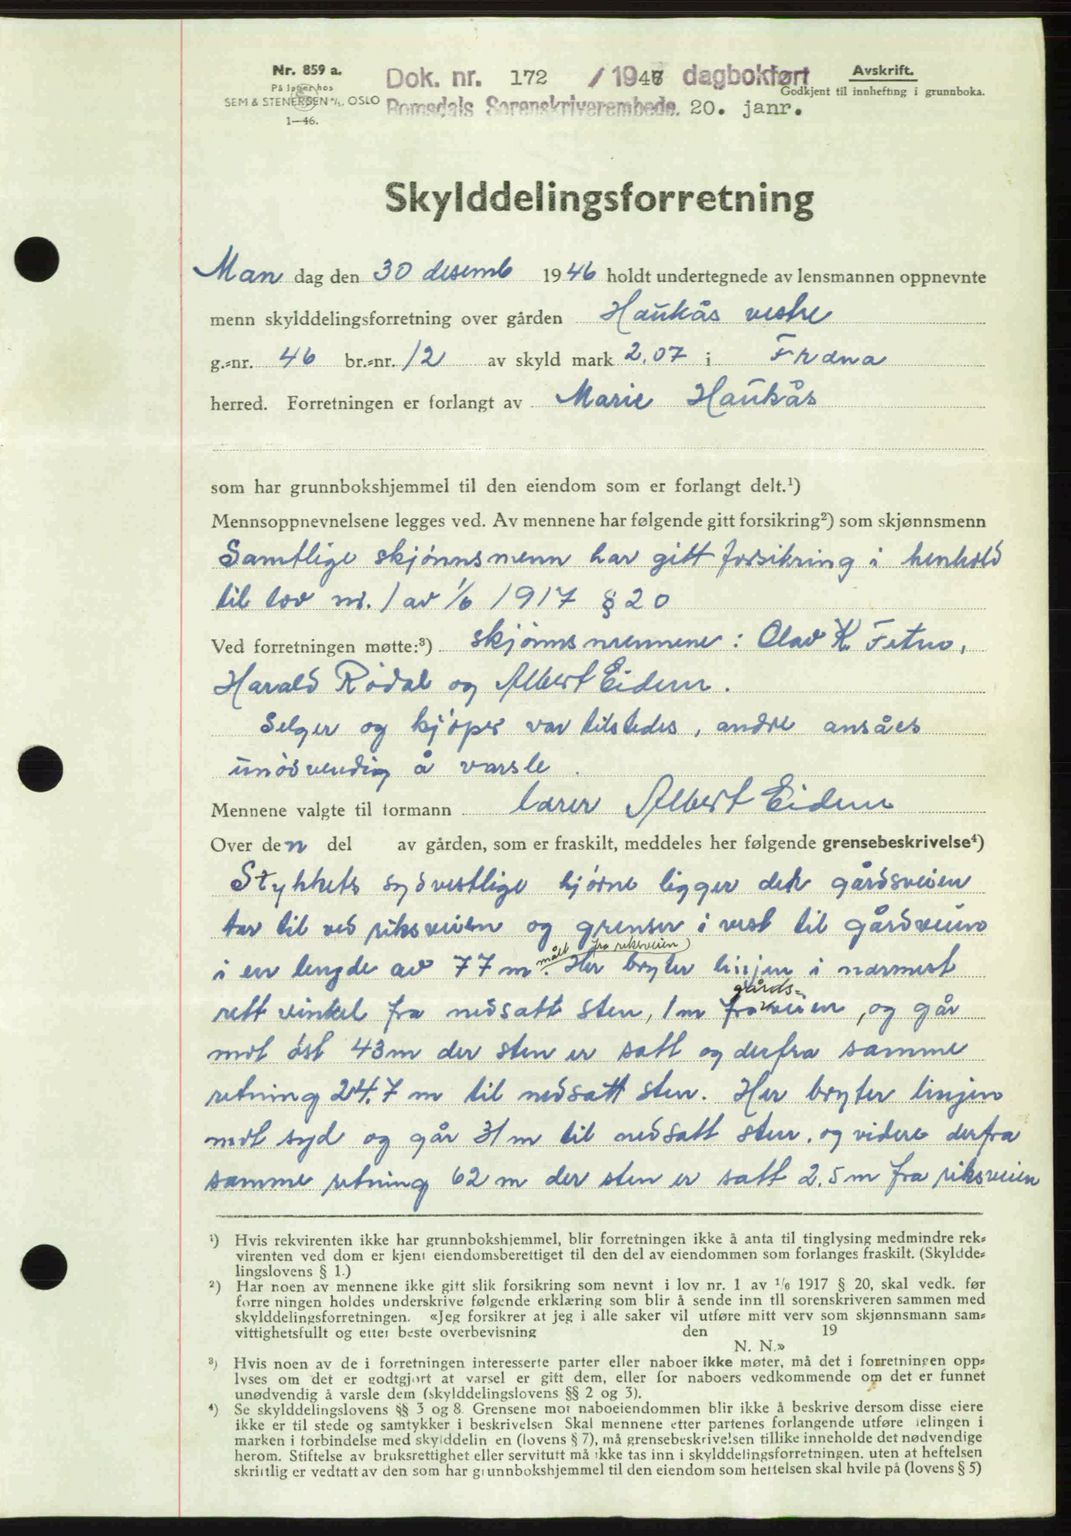 Nr. 859 a.
På lager hos
SEM & STENERSEN A/S, OSLO
1—46.
Dok. nr. 172 / 1947 dagbokført
Romsdals Sorenskriverembede. 20. janr.
Avskrift.
Godkjent til innhefting i grunnboka.
Skylddelingsforretning
Man dag den 30 desemb 1946 holdt undertegnede av lensmannen oppnevnte
menn skylddelingsforretning over gården Haukås vestre
g.-nr. 46 br.-nr. 12 av skyld mark 2.07 i Fræna
herred. Forretningen er forlangt av Marie Haukås
som har grunnbokshjemmel til den eiendom som er forlangt delt.¹)
Mennsoppnevnelsene legges ved. Av mennene har følgende gitt forsikring²) som skjønnsmenn
Samtlige skjønnsmenn har gitt forsikring i henhold
til lov nr. 1 av 1/6 1917 § 20
Ved forretningen møtte:³) skjønnsmennene: Olav K.
Harald Rødal og Albert Eidem.
Selger og kjøper var tilstedes, andre ansåes
unødvendig å varsle.
Mennene valgte til formann lærer Albert Eidem
Over den del av gården, som er fraskilt, meddeles her følgende grensebeskrivelse⁴)
Stykkets sydvestlige hjørne ligger der gårdsveien
tar til ved riksveien og grenser i vest til gårdsveien
i en lengde av 77 m (målt fra riksveien). Her bryter linjen i nærmest
rett vinkel fra nedsatt sten, 1 m fra gårdsveien, og går
mot øst 43 m der sten er satt og derfra samme
retning 24.7 m til nedsatt sten. Her bryter linjen
mot syd og går 31 m til nedsatt sten, og videre derfra
samme retning 62 m der sten er satt 2.5 m fra riksveien
¹) Hvis rekvirenten ikke har grunnbokshjemmel, blir forretningen ikke å anta til tinglysing medmindre rek-
virenten ved dom er kjent eiendomsberettiget til den del av eiendommen som forlanges fraskilt. (Skyldde-
lingslovens § 1.)
²) Har noen av mennene ikke gitt slik forsikring som nevnt i lov nr. 1 av 1/6 1917 § 20, skal vedk. før
forretningen holdes underskrive følgende erklæring som blir å sende inn til sorenskriveren sammen med
skylddelingsforretningen. «Jeg forsikrer at jeg i alle saker vil utføre mitt verv som skjønnsmann sam-
vittighetsfullt og etter beste overbevisning den 19
N. N.»
³) Hvis noen av de i forretningen interesserte parter eller naboer ikke møter, må det i forretningen opp-
lyses om det er godtgjort at varsel er gitt dem, eller for naboers vedkommende om det er funnet
unødvendig å varsle dem (skylddelingslovens §§ 2 og 3).
⁴) Se skylddelingslovens §§ 3 og 8. Grensene mot naboeiendommen blir ikke å beskrive dersom disse eiere
ikke er til stede og samtykker i beskrivelsen Skal mennene etter partenes forlangende utføre delingen i
marken i forbindelse med skylddelingen (lovens § 7), må grensebeskrivelsen tillike inneholde det nødvendige
herom. Stiftelse av bruksrettighet eller servitutt må ikke tas inn i skylddelingsforretningen, uten at heftelsen
skriftlig er vedtatt av den som har grunnbokshjemmel til den eiendom som heftelsen skal hvile på (lovens § 5)